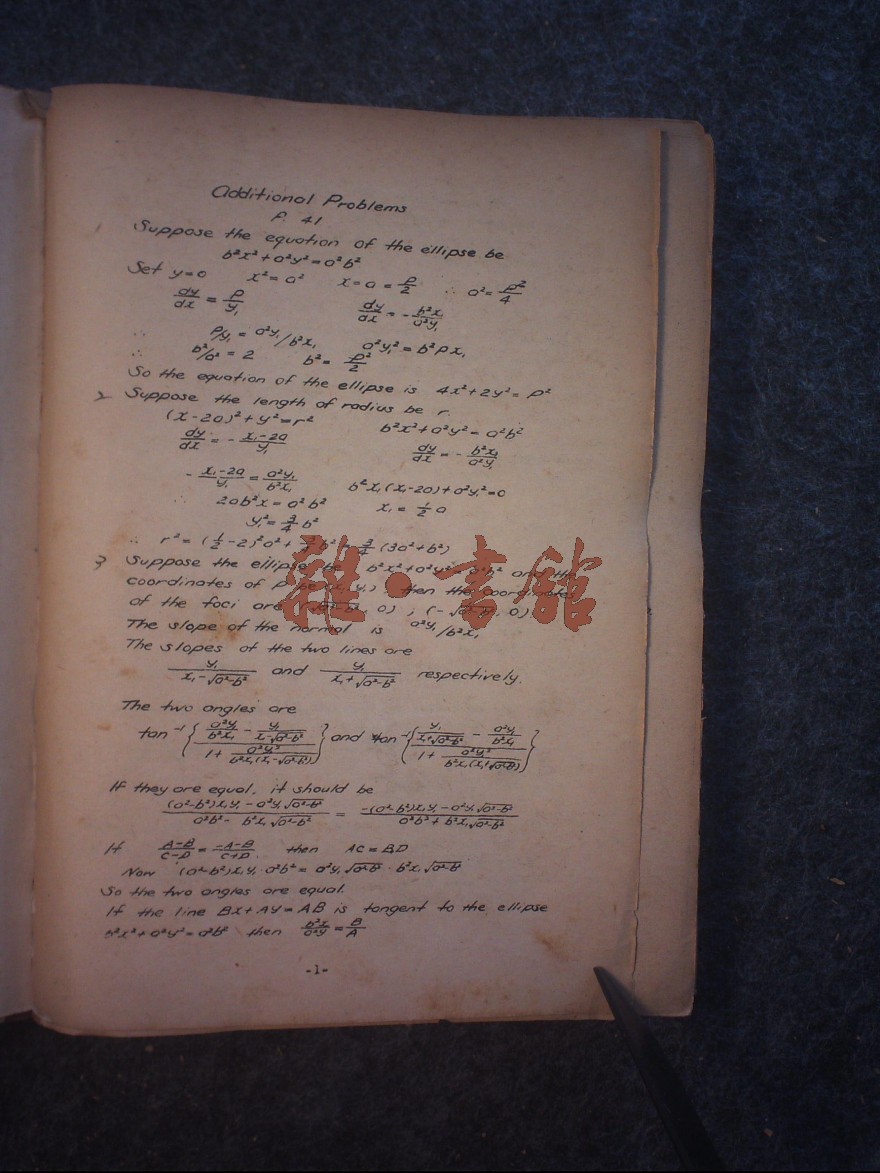 Additional Problems
P. 41
Suppose the equation of the ellipse be
b²x²+a²y²=a²b²
Set y=0 x²=a² x=a=p/2 ∴ a²=p²/4
dy/dx = p/y₁ dy/dx = -b²x₁/a²y₁
∴ p/y₁ = a²y₁/b²x₁ a²y₁²=b²px₁
∴ b²/a²=2 b²=p²/2
So the equation of the ellipse is 4x²+2y²=p²
2 Suppose the length of radius be r.
(x-2a)²+y²=r² b²x²+a²y²=a²b²
dy/dx = -(x₁-2a)/y₁ dy/dx = -b²x₁/a²y₁
-(x₁-2a)/y₁ = a²y₁/b²x₁ b²x₁(x₁-2a)+a²y₁²=0
∴ 2ab²x=a²b² x₁=½a
y₁²=¾b²
∴ r²=(½-2)²a²+¾b²=¾(3a²+b²)
3 Suppose the ellipse be b²x²+a²y²=a²b² and the
coordinates of P be (x₁,y₁) then the coordinates
of the foci are (√a²-b², 0) ; (-√a²-b², 0)
The slope of the normal is a²y₁/b²x₁
The slopes of the two lines are
y₁/(x₁-√a²-b²) and y₁/(x₁+√a²-b²) respectively.
The two angles are
tan⁻¹{(a²y₁/b²x₁ - y₁/(x₁-√a²-b²))/(1+a²y₁²/(b²x₁(x₁-√a²-b²)))} and tan⁻¹{(y₁/(x₁+√a²-b²) - a²y₁/b²x₁)/(1+a²y₁²/(b²x₁(x₁+√a²-b²)))}
If they are equal, it should be
((a²-b²)x₁y₁-a²y₁√a²-b²)/(a²b²-b²x₁√a²-b²) = (-(a²-b²)x₁y₁-a²y₁√a²-b²)/(a²b²+b²x₁√a²-b²)
If (A-B)/(C-D) = (-A-B)/(C+D) then AC=BD
Now (a²-b²)x₁y₁·a²b²=a²y₁√a²-b²·b²x₁√a²-b²
So the two angles are equal.
If the line Bx+Ay=AB is tangent to the ellipse
b²x²+a²y²=a²b² then b²x/a²y = B/A
-1-
雜·書館